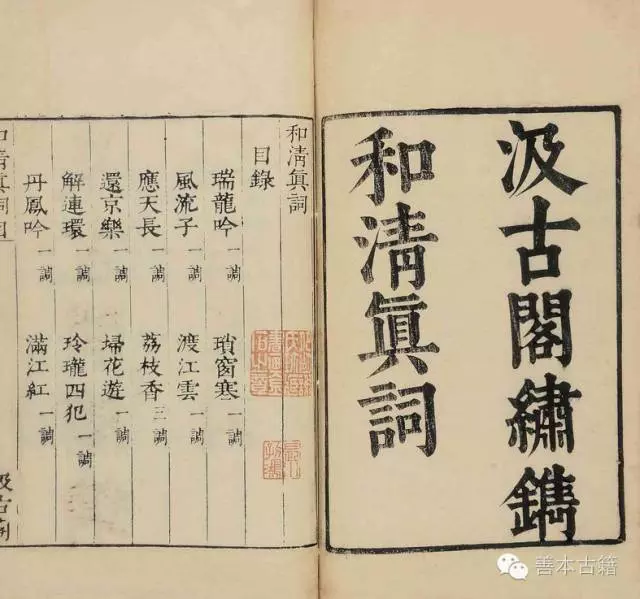 汲古閣繡鐫
和清眞詞
和清眞詞
目錄
瑞龍吟 一調 瑣窗寒 一調
風流子 一調 渡江雲 一調
應天長 一調 荔枝香 三調
還京樂 一調 埽花遊 一調
解連環 一調 玲瓏四犯 一調
丹鳳吟 一調 滿江紅 一調
和清眞詞目 汲古閣
善本古籍